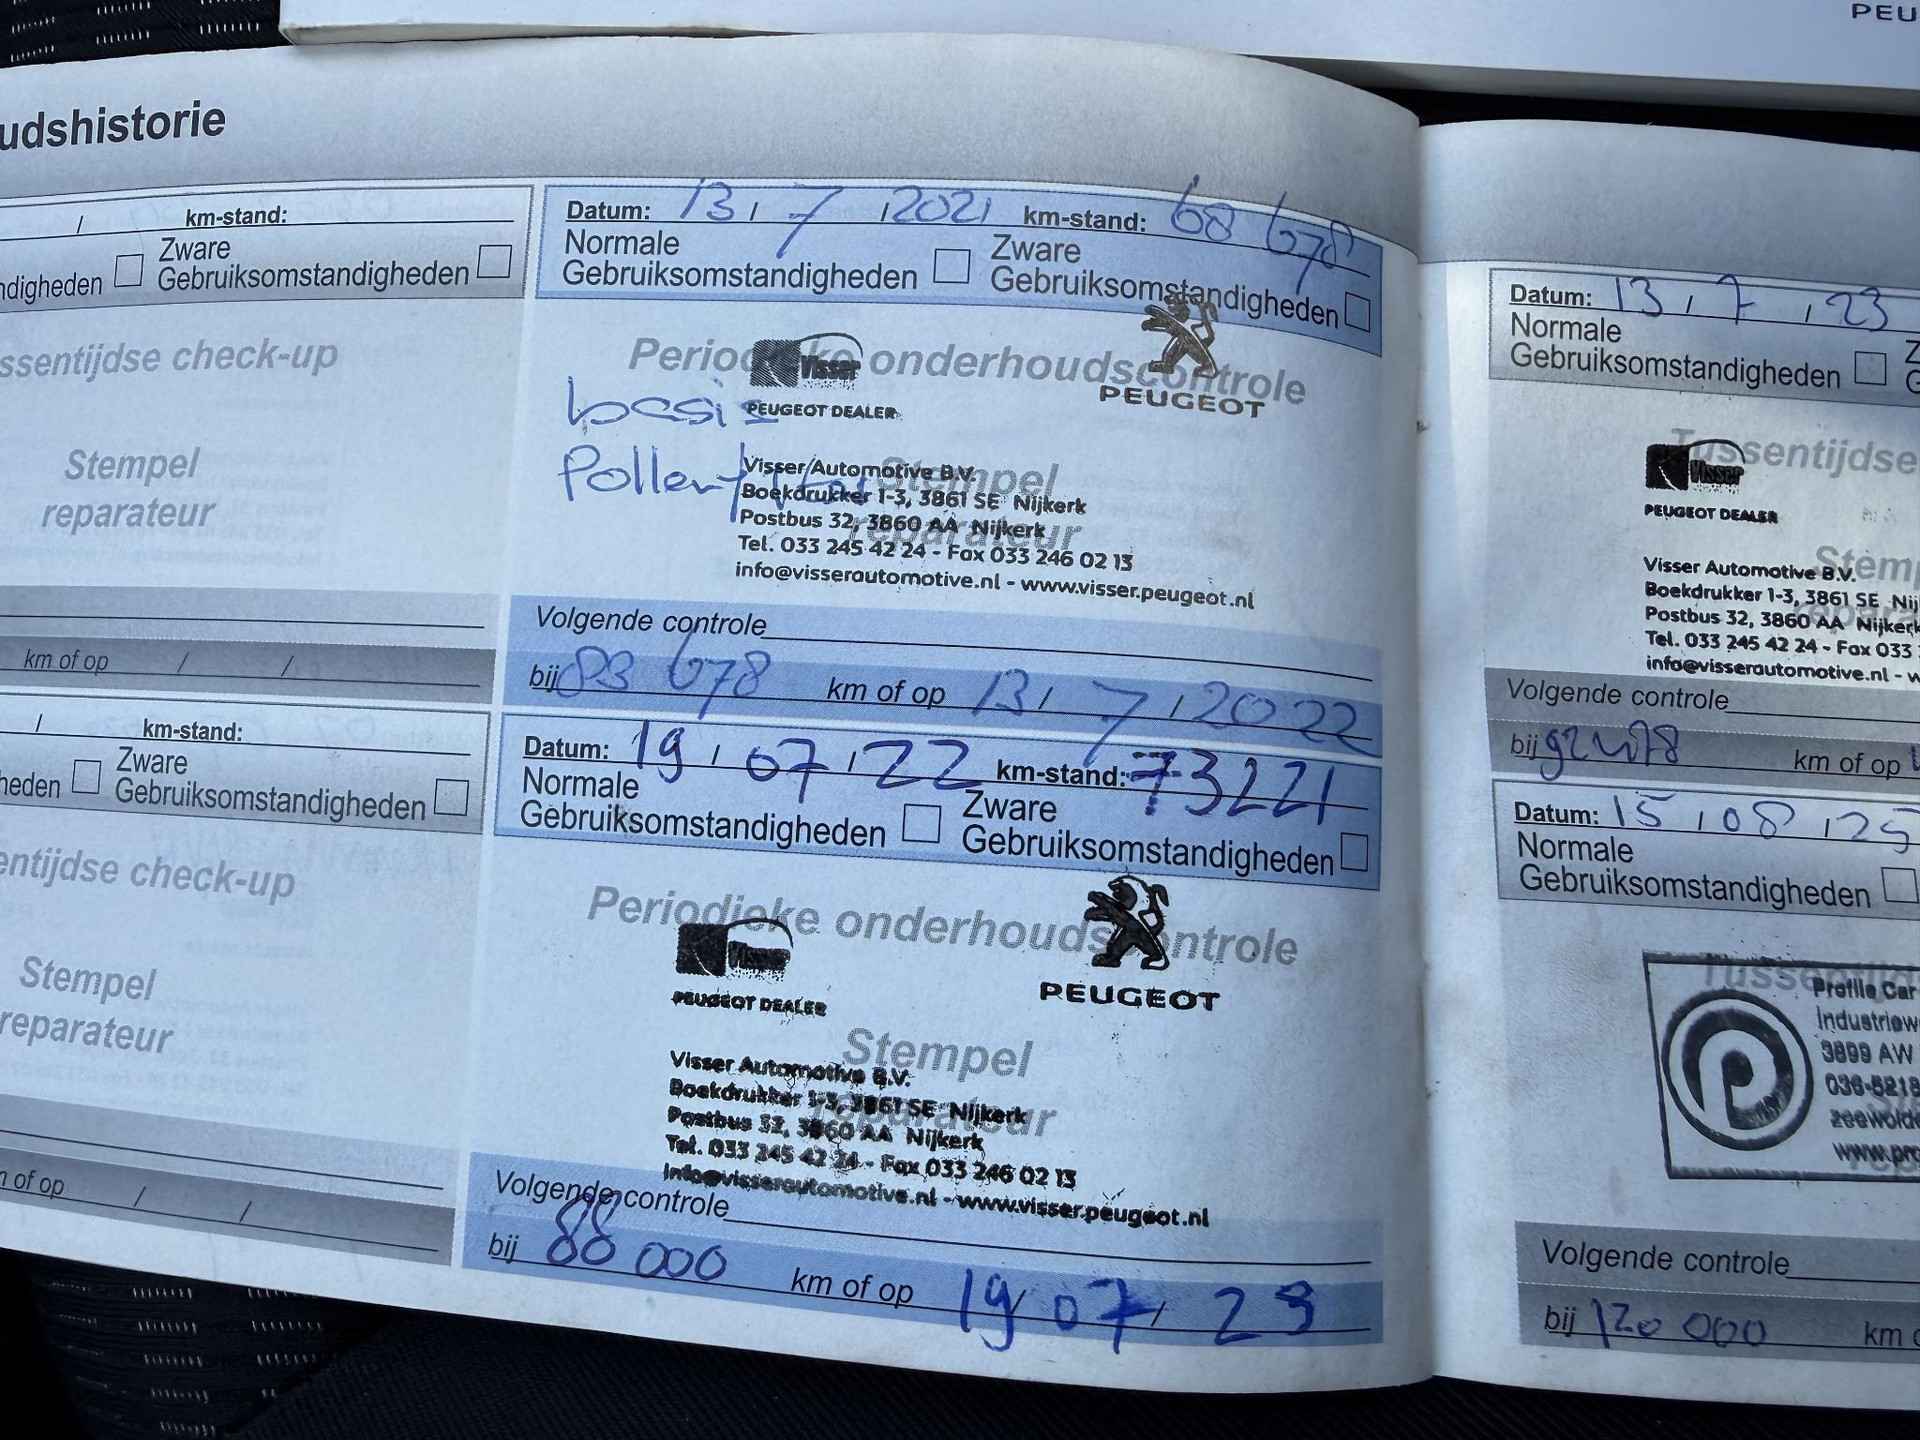 PEU
udshistorie
/ km-stand:
ndigheden Zware
Gebruiksomstandigheden
ssentijdse check-up
Stempel
reparateur
km of op / /
/ km-stand:
heden Zware
Gebruiksomstandigheden
entijdse check-up
Stempel
reparateur
m of op / /
Datum: 13 / 7 / 2021 km-stand: 68 678
Normale
Gebruiksomstandigheden
Zware
Gebruiksomstandigheden
Periodieke onderhoudscontrole
Visser
PEUGEOT DEALER
PEUGEOT
basis
Pollenfilter
Stempel
reparateur
Visser Automotive B.V.
Boekdrukker 1-3, 3861 SE Nijkerk
Postbus 32, 3860 AA Nijkerk
Tel. 033 245 42 24 - Fax 033 246 02 13
info@visserautomotive.nl - www.visser.peugeot.nl
Volgende controle
bij 83 678 km of op 13 / 7 / 2022
Datum: 19 / 07 / 22 km-stand: 73221
Normale
Gebruiksomstandigheden
Zware
Gebruiksomstandigheden
Periodieke onderhoudscontrole
Visser
PEUGEOT DEALER
PEUGEOT
Stempel
reparateur
Visser Automotive B.V.
Boekdrukker 1-3, 3861 SE Nijkerk
Postbus 32, 3860 AA Nijkerk
Tel. 033 245 42 24 - Fax 033 246 02 13
info@visserautomotive.nl - www.visser.peugeot.nl
Volgende controle
bij 88 000 km of op 19 / 07 / 23
Datum: 13 / 7 / 23
Normale
Gebruiksomstandigheden
Z
G
Tussentijdse
Visser
PEUGEOT DEALER
Stemp
repara
Visser Automotive B.V.
Boekdrukker 1-3, 3861 SE Nij
Postbus 32, 3860 AA Nijkerk
Tel. 033 245 42 24 - Fax 033
info@visserautomotive.nl - w
Volgende controle
bij km of op
Datum: 15 / 08 / 25
Normale
Gebruiksomstandigheden
Tussentijd
Profile Car
Industriew
3899 AW
036-5218
zeewolde
www.pro
Volgende controle
bij 120 000 km o